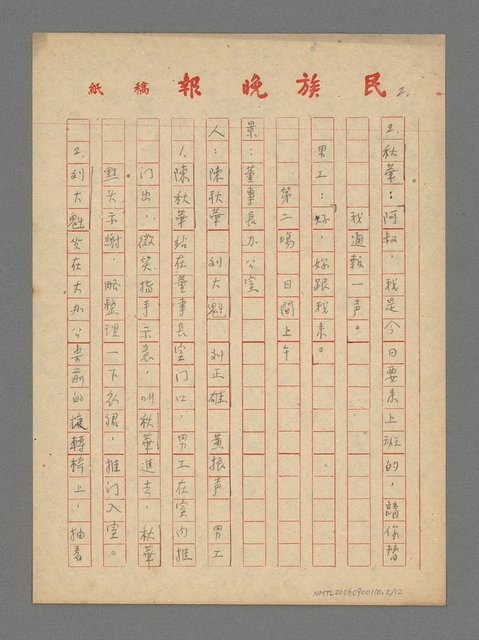 民族晚報 稿紙
2.
2.秋華：阿叔，我是今日要來上班的，請你替
我通報一声。
男工：好，妳跟我來。
第二場 日間上午
景：董事長办公室
人：陳秋華 刘大魁 刘正雄 黃振声 男工
1.陳秋華站在董事長室门口，男工在室内推
门出，微笑指手示意，叫秋華進去，秋華
點头示謝，略整理一下衣裙，推门入室。
2.刘大魁坐在大办公桌前的旋轉椅上，抽着
NMTL20060900110.2/12